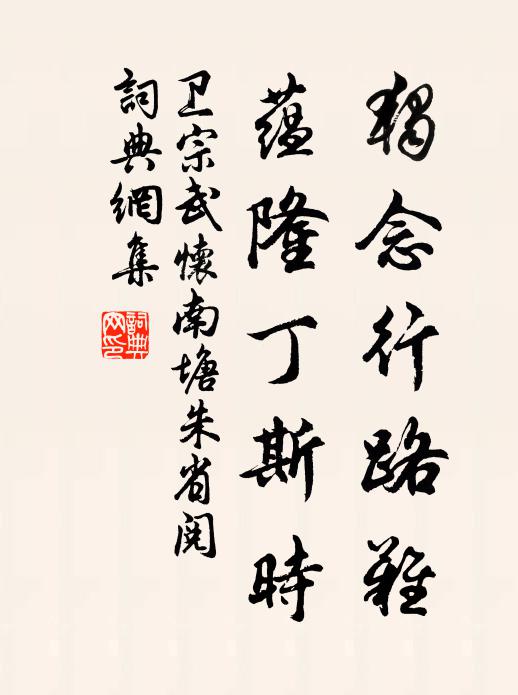 獨念行路難
蘊隆丁斯時
卫宗武懷南塘朱省閱
詞典網集
詞典網印